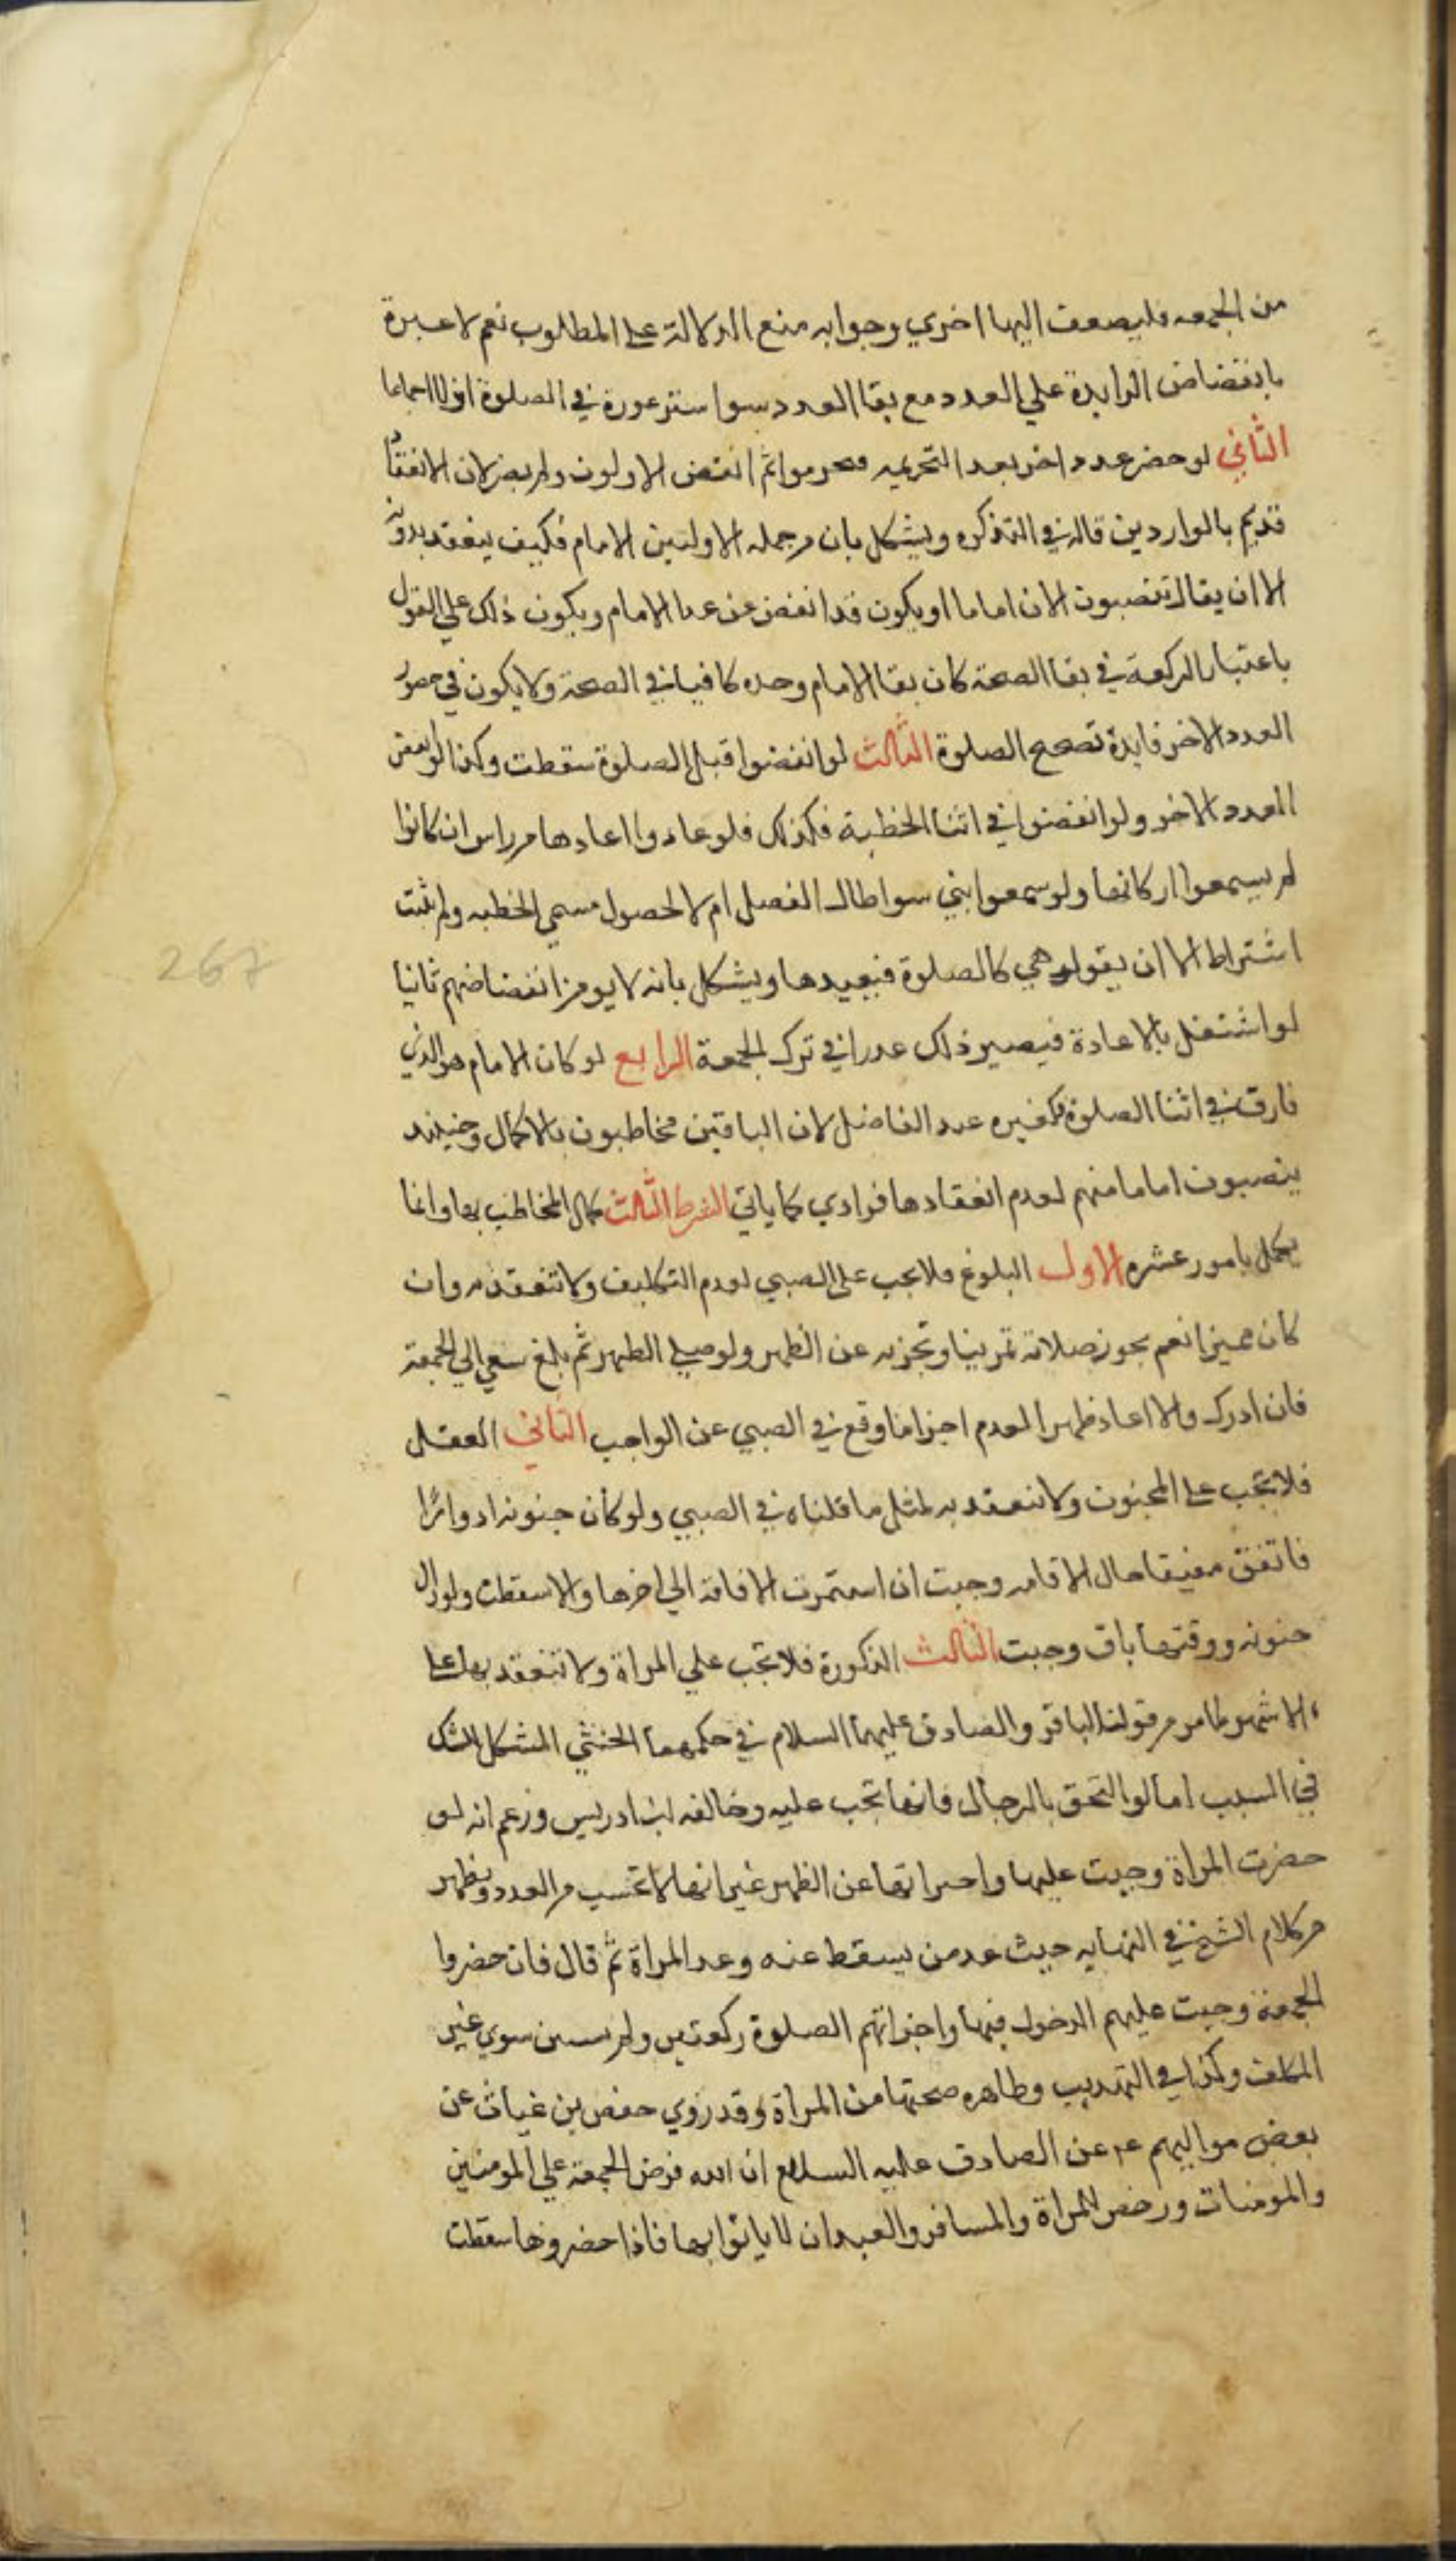 من الجمعه فليضف اليها اخري وجوابه منع الدلالة علي المطلوب نعم لا عبرة
بانفضاض الزايدة علي العدد مع بقا العدد سوا شرعوا في الصلوة اولا اجماعا
الثاني لو حضر عدد اخر بعد التحريمه فتحرموا ثم انفض الاولون ولم يضر لان الانعقاد
قد تم بالواردين قاله في التذكره ويشكل بان من جمله الاولين الامام فكيف ينعقد بدونه
الا ان يقال ينصبون الان اماما او يكون قد انفض من عدا الامام ويكون ذلك علي القول
باعتبار الركعة في بقا الصحة كان بقا الامام وحده كافيا في الصحة ولا يكون في حضور
العدد الاخر فايدة تصحح الصلوة الثالث لو انفضوا قبل الصلوة سقطت وكذا لو انفض
العدد الاخر ولو انفضوا في اثنا الخطبة فكذلك فلو عادوا اعادها من راس ان كانوا
لم يسمعوا اركانها ولو سمعوا بني سوا طال الفصل ام لا لحصول مسمي الخطبه ولم يثبت
اشتراط الا ان يقول هي كالصلوة فيعيدها ويشكل بانه لا يومن انفضاضهم ثانيا
لو اشتغل بالاعادة فيصير ذلك عذرا في ترك الجمعة الرابع لو كان الامام هو الذي
فارق في اثنا الصلوة فكغيره عند الفاضل لان الباقين مخاطبون بالاكمال وحينئذ
ينصبون اماما منهم لعدم انعقادها فرادي كما ياتي الشرط الثالث كمال المخاطب بها وانما
يكمل بامور عشره الاول البلوغ فلا يجب علي الصبي لعدم التكليف ولا تنعقد به وان
كان مميزا نعم يجوز صلاته تمرينا وتجزيه عن الظهر ولو صلي الظهر ثم بلغ سعي الي الجمعة
فان ادرك والا اعاد ظهرا لعدم اجزا ما وقع في الصبي عن الواجب الثاني العقل
فلا تجب علي المجنون ولا تنعقد به لمثل ما قلناه في الصبي ولو كان جنونه ادوارًا
فاتفق مفيقا حال الاقامه وجبت ان استمرت الافاقة الي اخرها والا سقطت ولو زال
جنونه ووقتها باق وجبت الثالث الذكورة فلا تجب علي المراة ولا تنعقد بها علي
الاشهر لما مر من قول الباقر والصادق عليهما السلام في حكمهما الخنثي المشكل للشك
في السبب اما لو التحق بالرجال فانها تجب عليه وخالف ابن ادريس وزعم انه لو
حضرت المراة وجبت عليها واجزاتها عن الظهر غير انها لا تحتسب من العدد ويظهر
من كلام الشيخ في النهايه حيث عد من يسقط عنه وعد المراة ثم قال فان حضروا
الجمعة وجبت عليهم الدخول فيها واجزاتهم الصلوة ركعتين ولم يستثن سوي غير
المكلف وكذا في التهذيب وظاهره صحتها من المراة وقد روي حفص بن غياث عن
بعض مواليهم عم عن الصادق عليه السلام ان الله فرض الجمعة علي المومنين
والمومنات ورخص للمراة والمسافر والعبد ان لا ياتوا بها فاذا حضروها سقطت
267